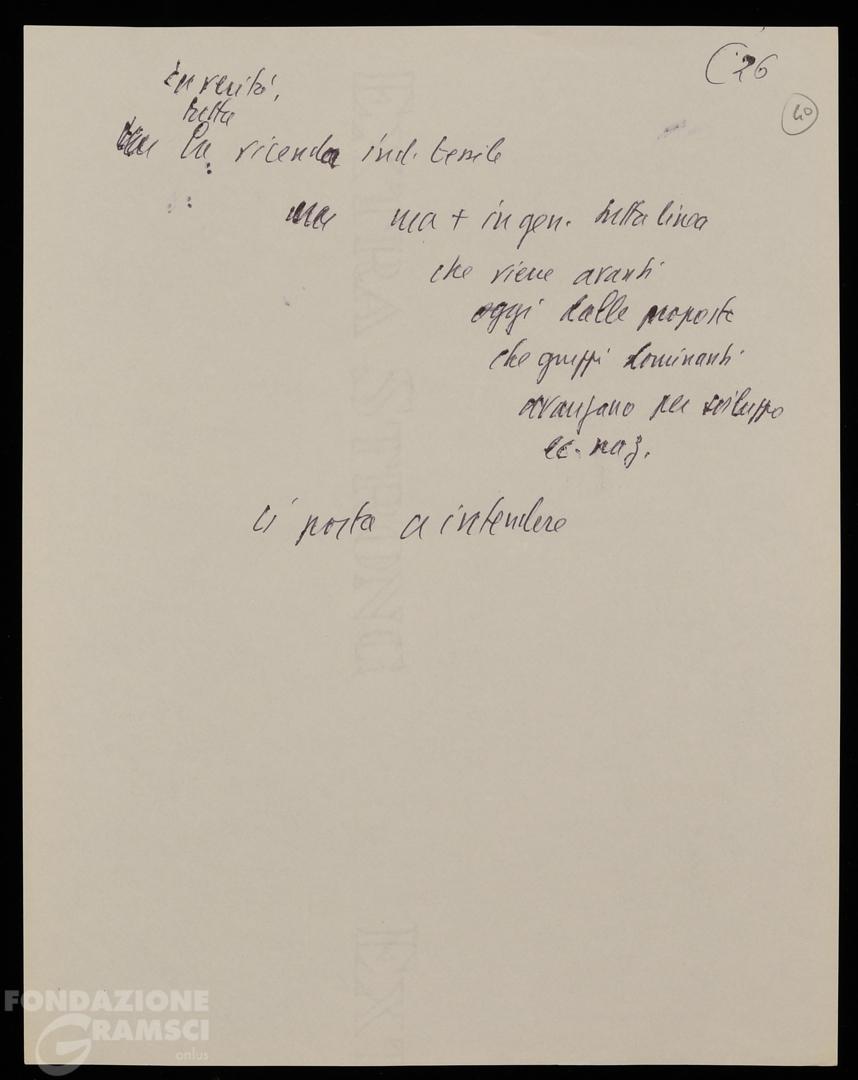 (26
40
In verità,
tutta
la vicenda ind. tessile
ma + in gen. tutta linea
che viene avanti
oggi dalle proposte
che gruppi dominanti
avanzano per sviluppo
ec. naz.
ci porta a intendere
FONDAZIONE
GRAMSCI
onlus